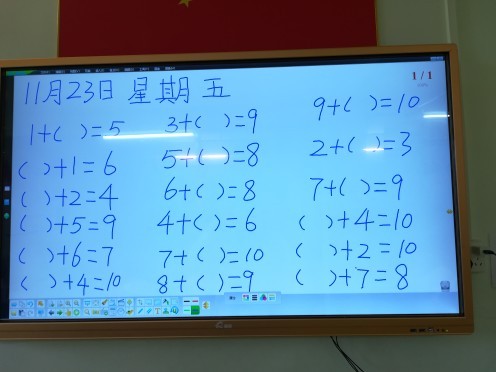 1/1
11月23日 星期五
1+( )=5 3+( )=9 9+( )=10
( )+1=6 5+( )=8 2+( )=3
( )+2=4 6+( )=8 7+( )=9
( )+5=9 4+( )=6 ( )+4=10
( )+6=7 7+( )=10 ( )+2=10
( )+4=10 8+( )=9 ( )+7=8